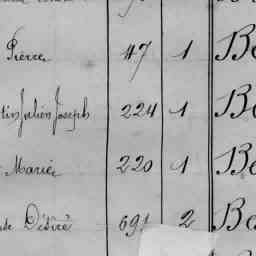 Pierre 47 1 Be
tin Julien Joseph 224 1 Be
Marie 220 1 Be
de Désiré 691 2 Be